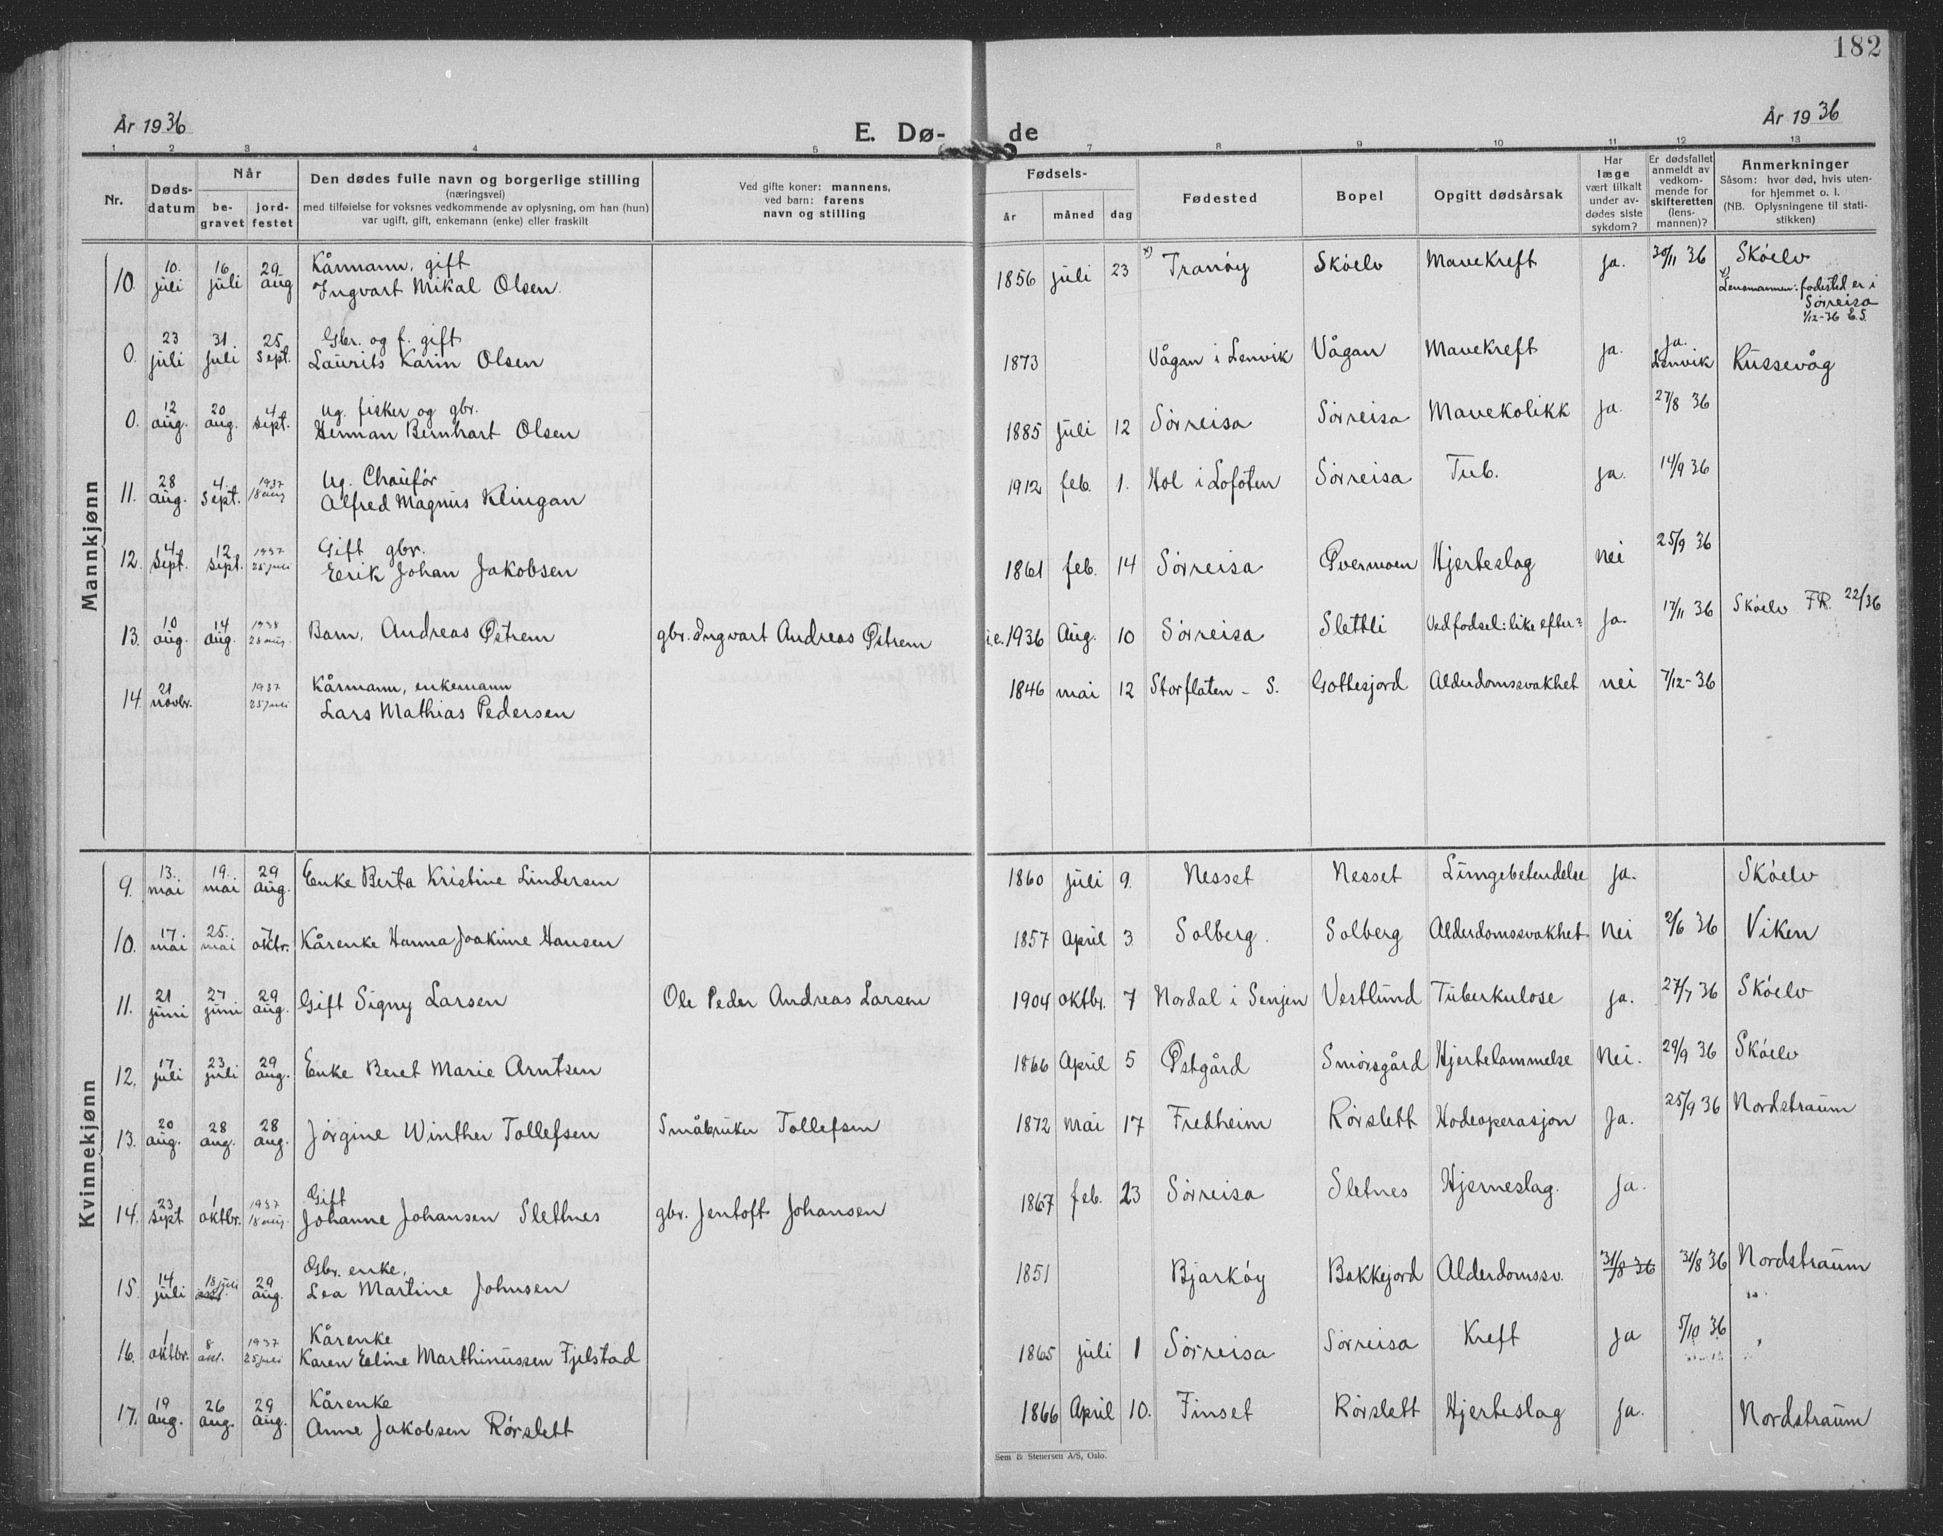 182
År 1936
E. Dø-de
År 1936
1 2 3 4 5 6 7 8 9 10 11 12 13
Nr.
Døds-
datum
Når
be-
gravet
jord-
festet
Den dødes fulle navn og borgerlige stilling
(næringsvei)
med tilføielse for voksnes vedkommende av oplysning, om han (hun)
var ugift, gift, enkemann (enke) eller fraskilt
Ved gifte koner: mannens,
ved barn: farens
navn og stilling
Fødsels-
år måned dag
Fødested
Bopel
Opgitt dødsårsak
Har
læge
vært tilkalt
under av-
dødes siste
sykdom?
Er dødsfallet
anmeldt av
vedkom-
mende for
skifteretten
(lens-
mannen)?
Anmerkninger
Såsom: hvor død, hvis uten-
for hjemmet o. l.
(NB. Oplysningene til stati-
stikken)
Mannkjønn
10. 10. juli 16 juli 29 aug Kårmann, gift
Ingvart Mikal Olsen 1856 juli 23 x) Tranøy Skøelv Mavekreft Ja. 30/11 36 Skøelv
x) Lensmannen: fødested er i
Sørreisa
1/12-36 E.S.
0. 23 juli 31 juli 25 sept. Gbr. og f. gift
Laurits Karin Olsen 1873 Vågan i Lenvik Vågan Mavekreft Ja. Ja. Lenvik Russevåg
0. 12 aug. 20 aug. 4 sept. Ug. fisker og gbr.
Herman Bernhart Olsen 1885 juli 12 Sørreisa Sørreisa Mavekolikk Ja. 27/8 36
11. 28 aug. 4. sept. 1937 18 aug Ug. Chaufør
Alfred Magnus Klingan 1912 feb. 1. Hol i Lofoten Sørreisa Tub. Ja. 14/9 36
12. 4 sept. 12 sept. 1937 25 juli Gift gbr.
Erik Johan Jakobsen 1861 feb. 14 Sørreisa Øvermoen Hjerteslag Nei 25/9 36
13. 10 aug. 14 aug. 1938 28 aug. Barn, Andreas Østrem gbr. Ingvart Andreas Østrem i.e. 1936 Aug. 10 Sørreisa Slettli Ved fødsel: like efter? Ja. 17/11 36 Skøelv FR. 22/36
14. 21 novbr. 1937 25 juli Kårmann, enkemann
Lars Mathias Pedersen 1846 mai 12 Storflaten - S. Gottesjord Alderdomssvakhet Nei 7/12-36
Kvinnekjønn
9. 13. mai 19. mai 29 aug. Enke Berta Kristine Lindersen 1860 juli 9. Nesset Nesset Lungebetendelse Ja. Skøelv
10. 17. mai 25. mai 7 oktbr. Kårenke Hanna Joakime Hansen 1857 April 3 Solberg. Solberg Alderdomssvakhet Nei 2/6 36 Viken
11. 21 juni 27 juni 29 aug. Gift Signy Larsen Ole Peder Andreas Larsen 1904 oktbr. 7 Nordal i Senjen Vestlund Tuberkulose Ja. 27/7 36 Skøelv
12. 17 juli 23 juli 29 aug. Enke Beret Marie Arntsen 1866 April 5 Østgård Smørsgård Hjertelammelse Nei. 29/9 36 Skøelv
13. 20 aug. 28 aug. 28 aug. Jørgine Winther Tollefsen Småbruker Tollefsen 1872 mai 17 Fredheim Rørslett Hodeoperasjon Ja. 25/9 36 Nordstraum
14. 23 sept 1 oktbr. 1937 18 aug. Gift
Johanne Johansen Slettnes gbr. Jentoft Johansen 1867 feb. 23 Sørreisa Sletnes Hjerneslag. Ja.
15. 14 juli 18 juli 29 aug. Gbr. enke,
Lea Martine Johnsen 1851 Bjarkøy Bakkejord Alderdomssv. 31/8 36 31/8 36 Nordstraum
16. 1 oktbr. 8 okt. 1937 25 juli Kårenke
Karen Eline Marthinussen Fjelstad 1865 juli 1 Sørreisa Sørreisa Kreft Ja 5/10 36 "
17. 19 aug. 26 aug. 29 aug. Kårenke
Anne Jakobsen Rørslett 1866 April 10. Finset Rørslett Hjerteslag Ja. Nordstraum
Sem & Stenersen A/S, Oslo.